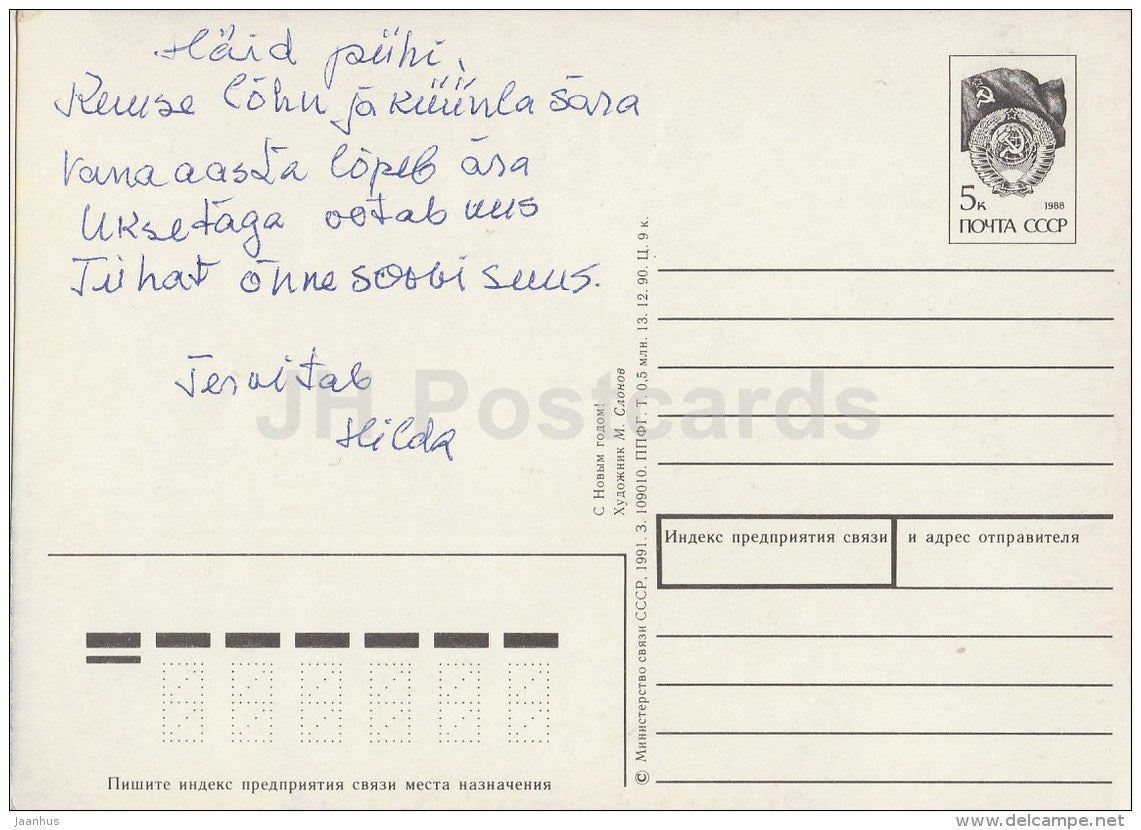 Häid pühi,
Kuuse lõhn ja küünla sära
Vana aasta lõpeb ära
Ukse taga ootab uus
Tuhat õnne soovi suus.
Tervitab
Hilda
5к 1988
ПОЧТА СССР
С Новым годом!
Художник М. Слонов
© Министерство связи СССР, 1991. З. 109010. ППФГ. Т. 0,5 млн. 13. 12. 90. Ц. 9 к.
Индекс предприятия связи и адрес отправителя
Пишите индекс предприятия связи места назначения
JH Postcards
Jaanhus
delcampe.net